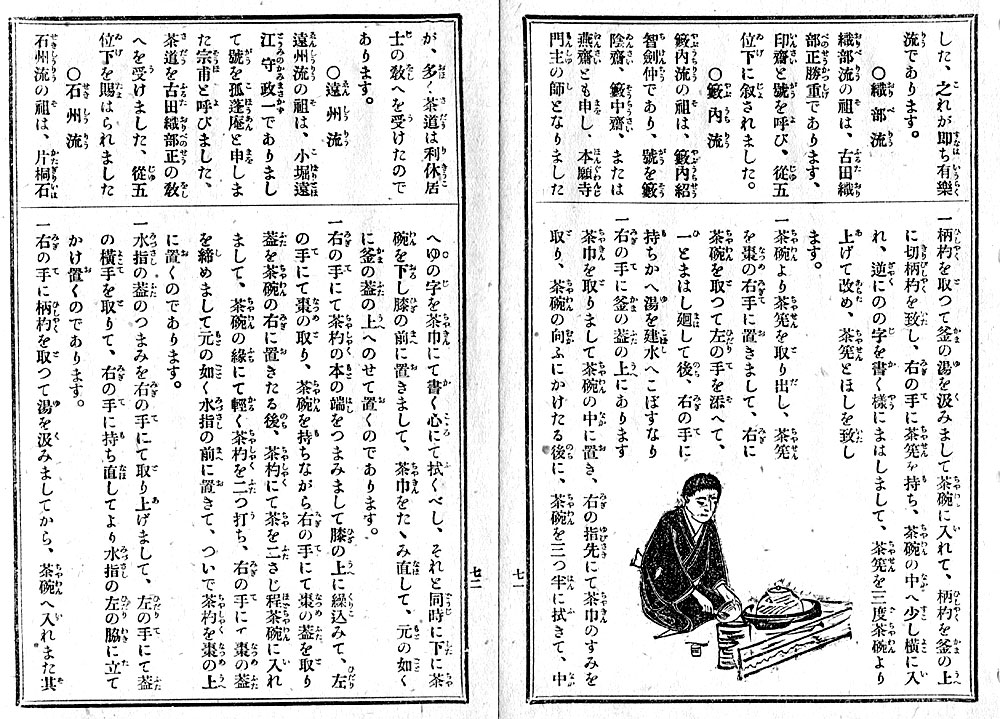 した、之れが即ち有樂
流であります。
○織部流
織部流の祖は、古田織
部正勝重であります、
印齋と號を呼び、從五
位下に叙されました。
○籔內流
籔內流の祖は、籔內紹
智劍仲であり、號を籔
陰齋、籔中齋、または
燕齋とも申し、本願寺
門主の師となりました
一柄杓を取つて釜の湯を汲みまして茶碗に入れて、柄杓を釜の上
に切柄杓を致し、右の手に茶筅を持ち、茶碗の中へ少し橫に入
れ、逆にのの字を書く樣にまはしまして、茶筅を三度茶碗より
上げて改め、茶筅とほしを致し
ます。
一茶碗より茶筅を取り出し、茶筅
を棗の右手に置きまして、右に
茶碗を取つて左の手を添へて、
一とまはし廻して後、右の手に
持ちかへ湯を建水へこぼすなり
一右の手に釜の葢の上にあります
茶巾を取りまして茶碗の中に置き、右の指先にて茶巾のすみを
取り、茶碗の向ふにかけたる後に、茶碗を三つ半に拭きて、中
七二
が、多く茶道は利休居
士の敎へを受けたので
あります。
○遠州流
遠州流の祖は、小堀遠
江守政一でありまし
て號を孤蓬庵と申しま
た宗甫と呼びました、
茶道を古田織部正の敎
へを受けました、從五
位下を賜はられました
○石州流
石州流の祖は、片桐石
へゆの字を茶巾にて書く心にて拭くべし、それと同時に下に茶
碗を下し膝の前に置きまして、茶巾をたゝみ直して、元の如く
に釜の葢の上へのせて置くのであります。
一右の手にて茶杓の本の端をつまみまして膝の上に繰込みて、左
の手にて棗の取り、茶碗を持ちながら右の手にて棗の葢を取り
葢を茶碗の右に置きたる後、茶杓にて茶を二さじ程茶碗に入れ
まして、茶碗の緣にて輕く茶杓を二つ打ち、右の手にて棗の葢
を締めまして元の如く水指の前に置きて、ついで茶杓を棗の上
に置くのであります。
一水指の葢のつまみを右の手にて取り上げまして、左の手にて葢
の橫手を取りて、右の手に持ち直してより水指の左の脇に立て
かけ置くのであります。
一右の手に柄杓を取つて湯を汲みましてから、茶碗へ入れまた其